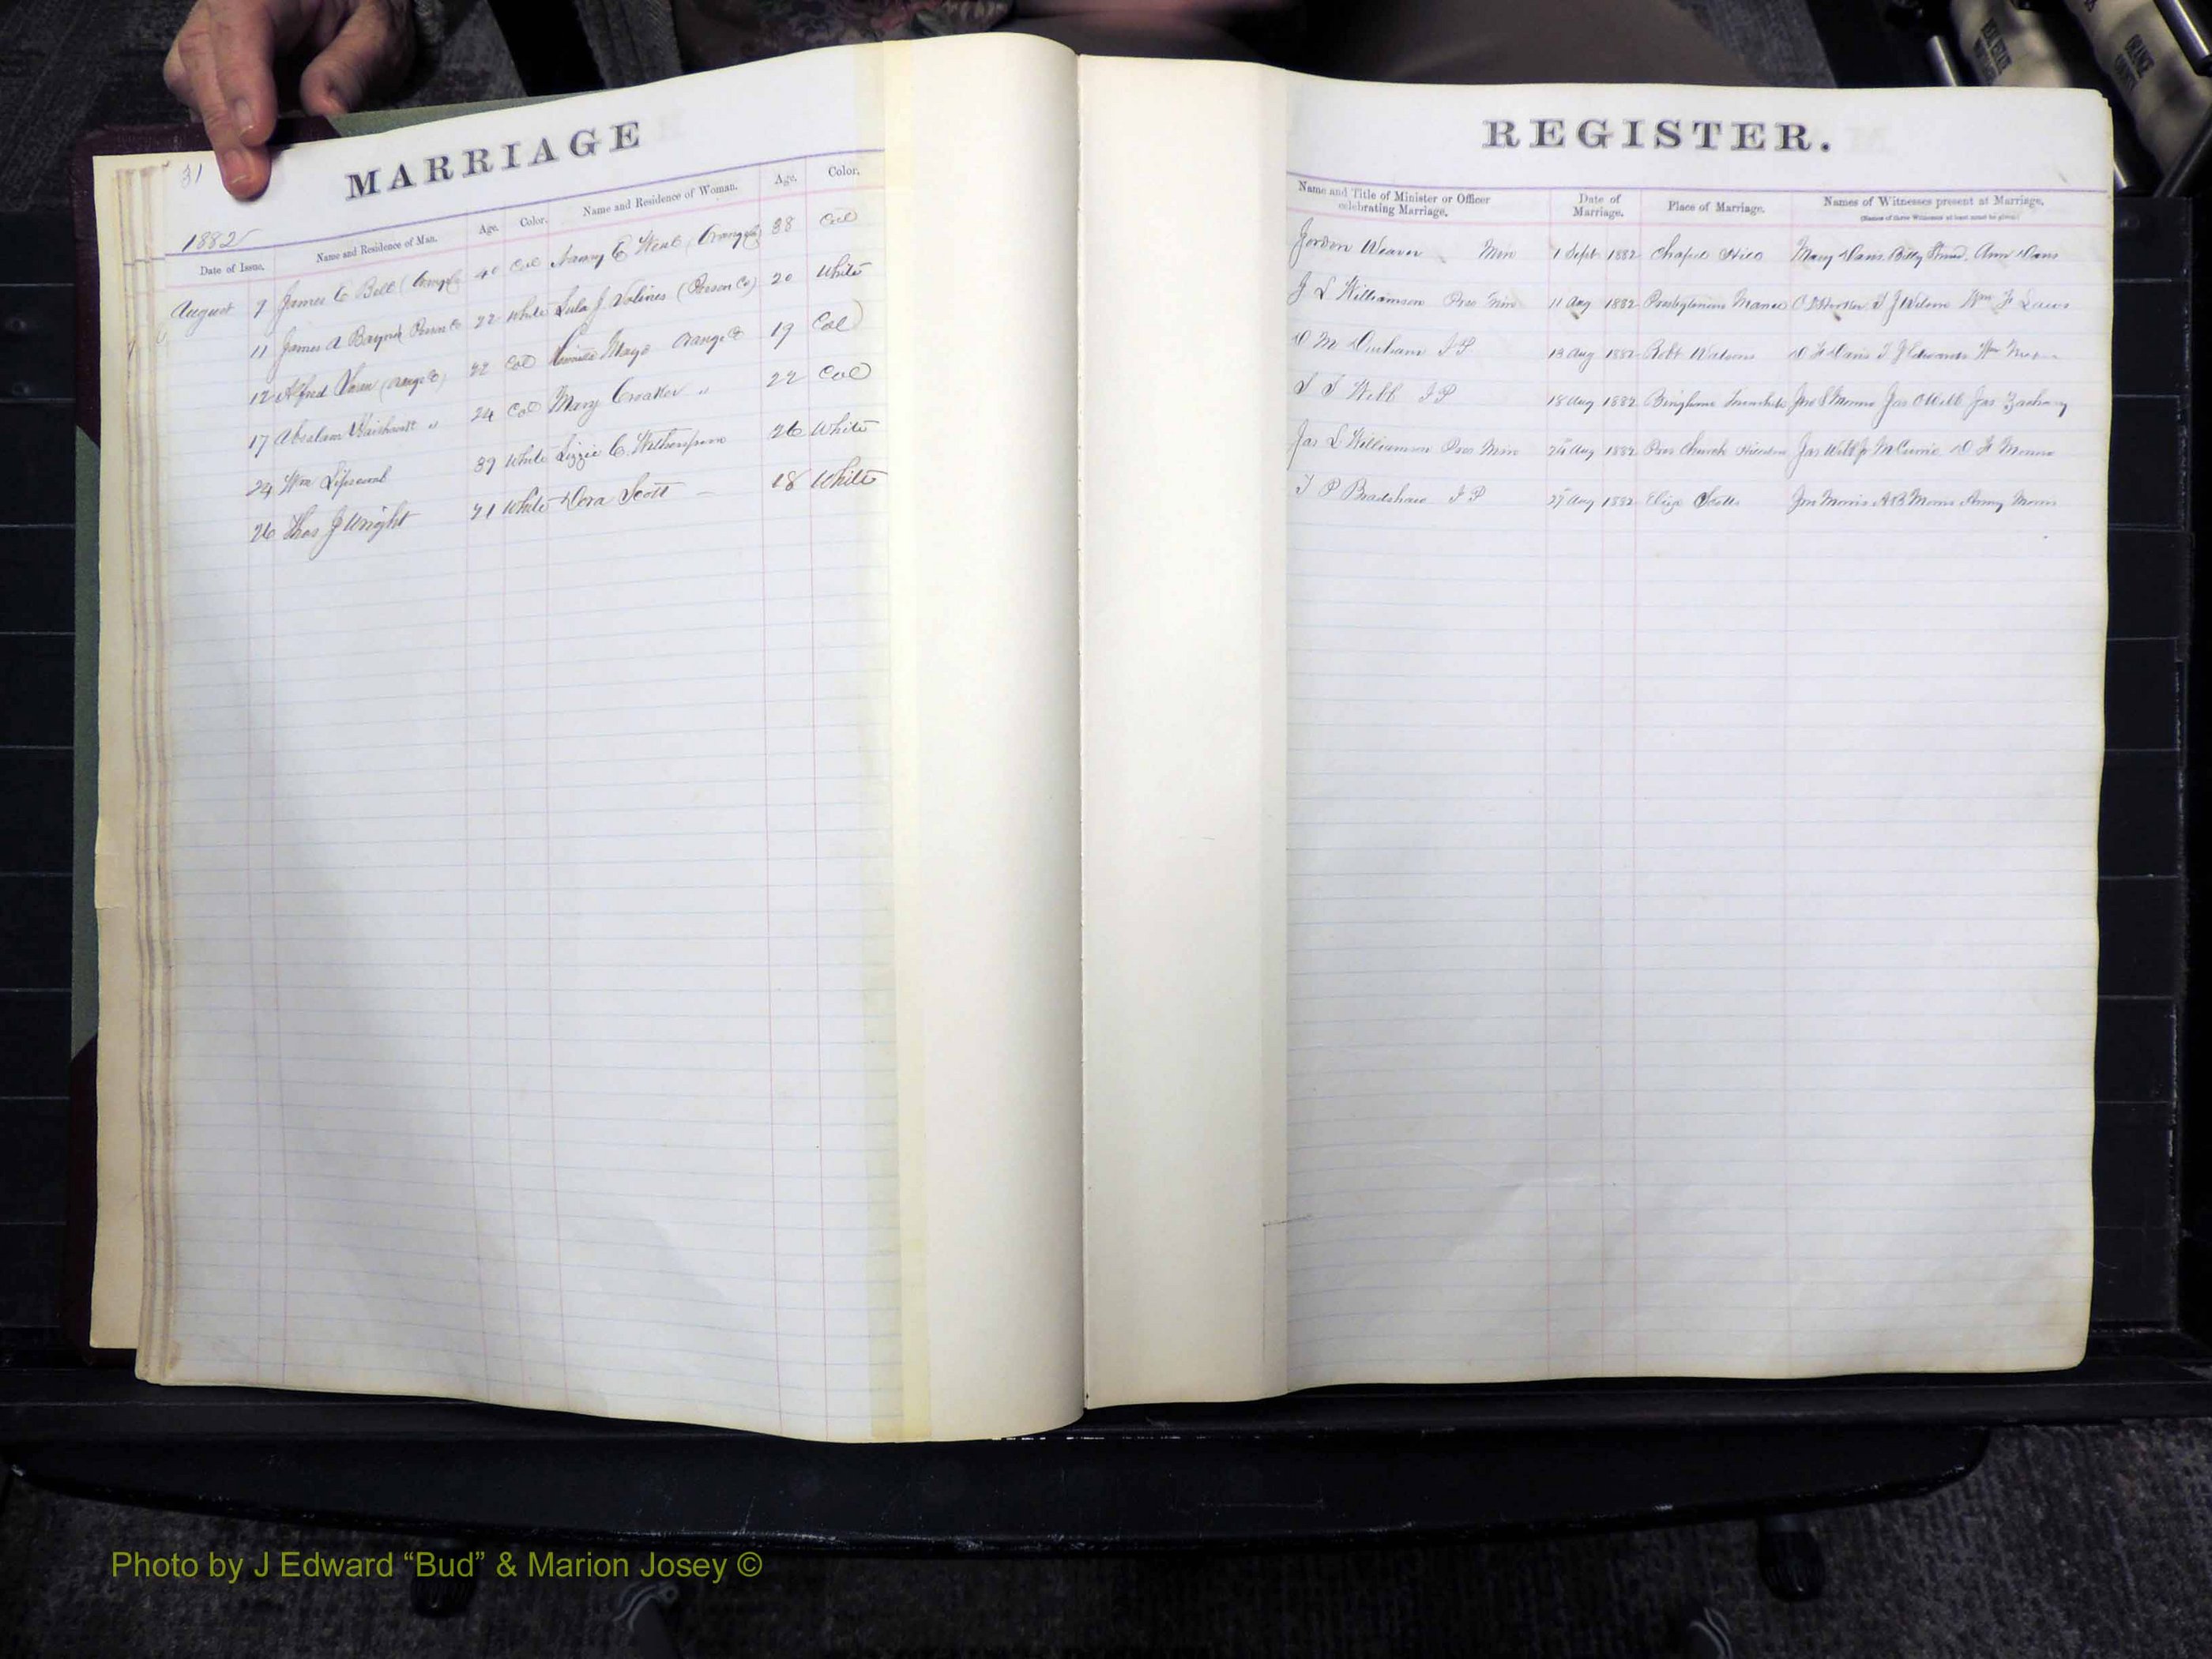 31
MARRIAGE
1882
Date of Issue. Name and Residence of Man. Age. Color. Name and Residence of Woman. Age. Color.
August 9 James C Bell (Orange Co 40 Col Nancy E Webb (Orange Co) 38 Col
11 James A Person Co 22 White Lula J. (Person Co) 20 White
12 Alfred (Orange Co) 22 Col Mayo Orange Co 19 Col
17 Absalom " 24 Col Mary Croaker " 22 Col
24 Wm Lipscomb 39 White Lizzie C. Witherspoon 26 White
26 Thos J Wright 21 White Dora Scott 18 White
REGISTER.
Name and Title of Minister or Officer celebrating Marriage. Date of Marriage. Place of Marriage. Names of Witnesses present at Marriage.
(Names of three Witnesses at least must be given.)
Jordon Weaver Min 1 Sept 1882 Chapel Hill Mary Davis Billy Ann Davis
J L Williamson Pres Min 11 Aug 1882 Presbyterian Manse T J Wilson Wm F Laws
D M Durham J P 13 Aug 1882 Robt Watsons D F Davis T J Edwards Wm
J P 18 Aug 1882 Bingham Township Jas O Webb Jas Zachary
Jas L Williamson Pres Min 24 Aug 1882 Pres Church Jas Webb Jr
T P Bradshaw J P 27 Aug 1882 Eliza Scotts Jno Morris A B Morris Morris
ORANGE
COUNTY
Photo by J Edward “Bud” & Marion Josey ©